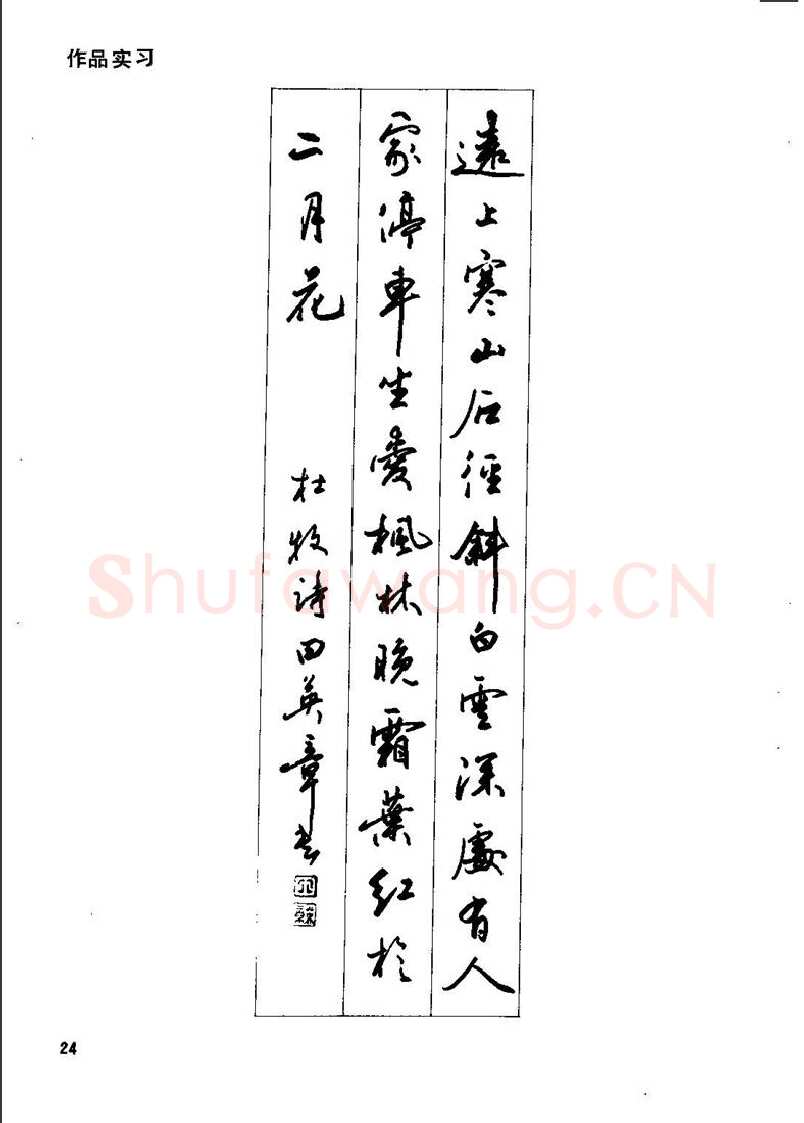 作品实习
遠上寒山石徑斜白雲深處有人
家停車坐愛楓林晚霜葉紅於
二月花
杜牧詩田英章書
Shufawang.CN
24